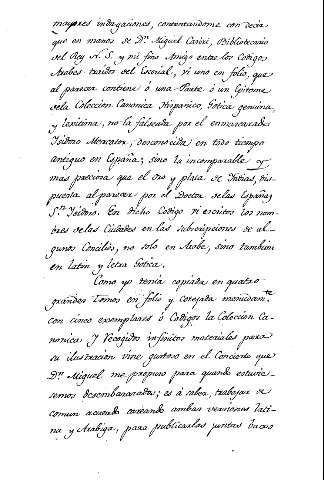 mayores indagaciones, contentandome con decir
que en manos de Dn. Miguel Casiri, Bibliotecario
del Rey N. S. y mi fino Amigo entre los Codigos
Arabes traidos del Escorial, vi uno en folio, que
al parecer contiene ó una Parte ó un Epitome
de la Coleccion Canonica Hispanico, Gotica genuina,
y legitima, no la falseada por el enmascarado
Isidoro Mercator, desconocida en todo tiempo
antiguo en España; sino la incomparable y
mas preciosa que el oro y plata de Indias, dis-
puesta al parecer por el Doctor de las Españas
Sn. Isidro. En dicho Codigo vi escritos los nom-
bres de las Ciudades en las subscripciones de al-
gunos Concilios, no solo en Arabe, sino tambien
en latin y letra Gotica.
Como yo tenia copiada en quatro
grandes Tomos en folio y cotejada menudamte.
con cinco exemplares ó Codigos la Coleccion Ca-
nonica Y Recogidos infinitos materiales para
su ilustracion vine gustoso en el Concierto que
Dn. Miguel me propuso para quando estuvie-
semos desembarazados; es á saber, trabajar de
comun acuerdo careando ambas versiones lati-
na y Arabiga, para publicarlas juntas baxo